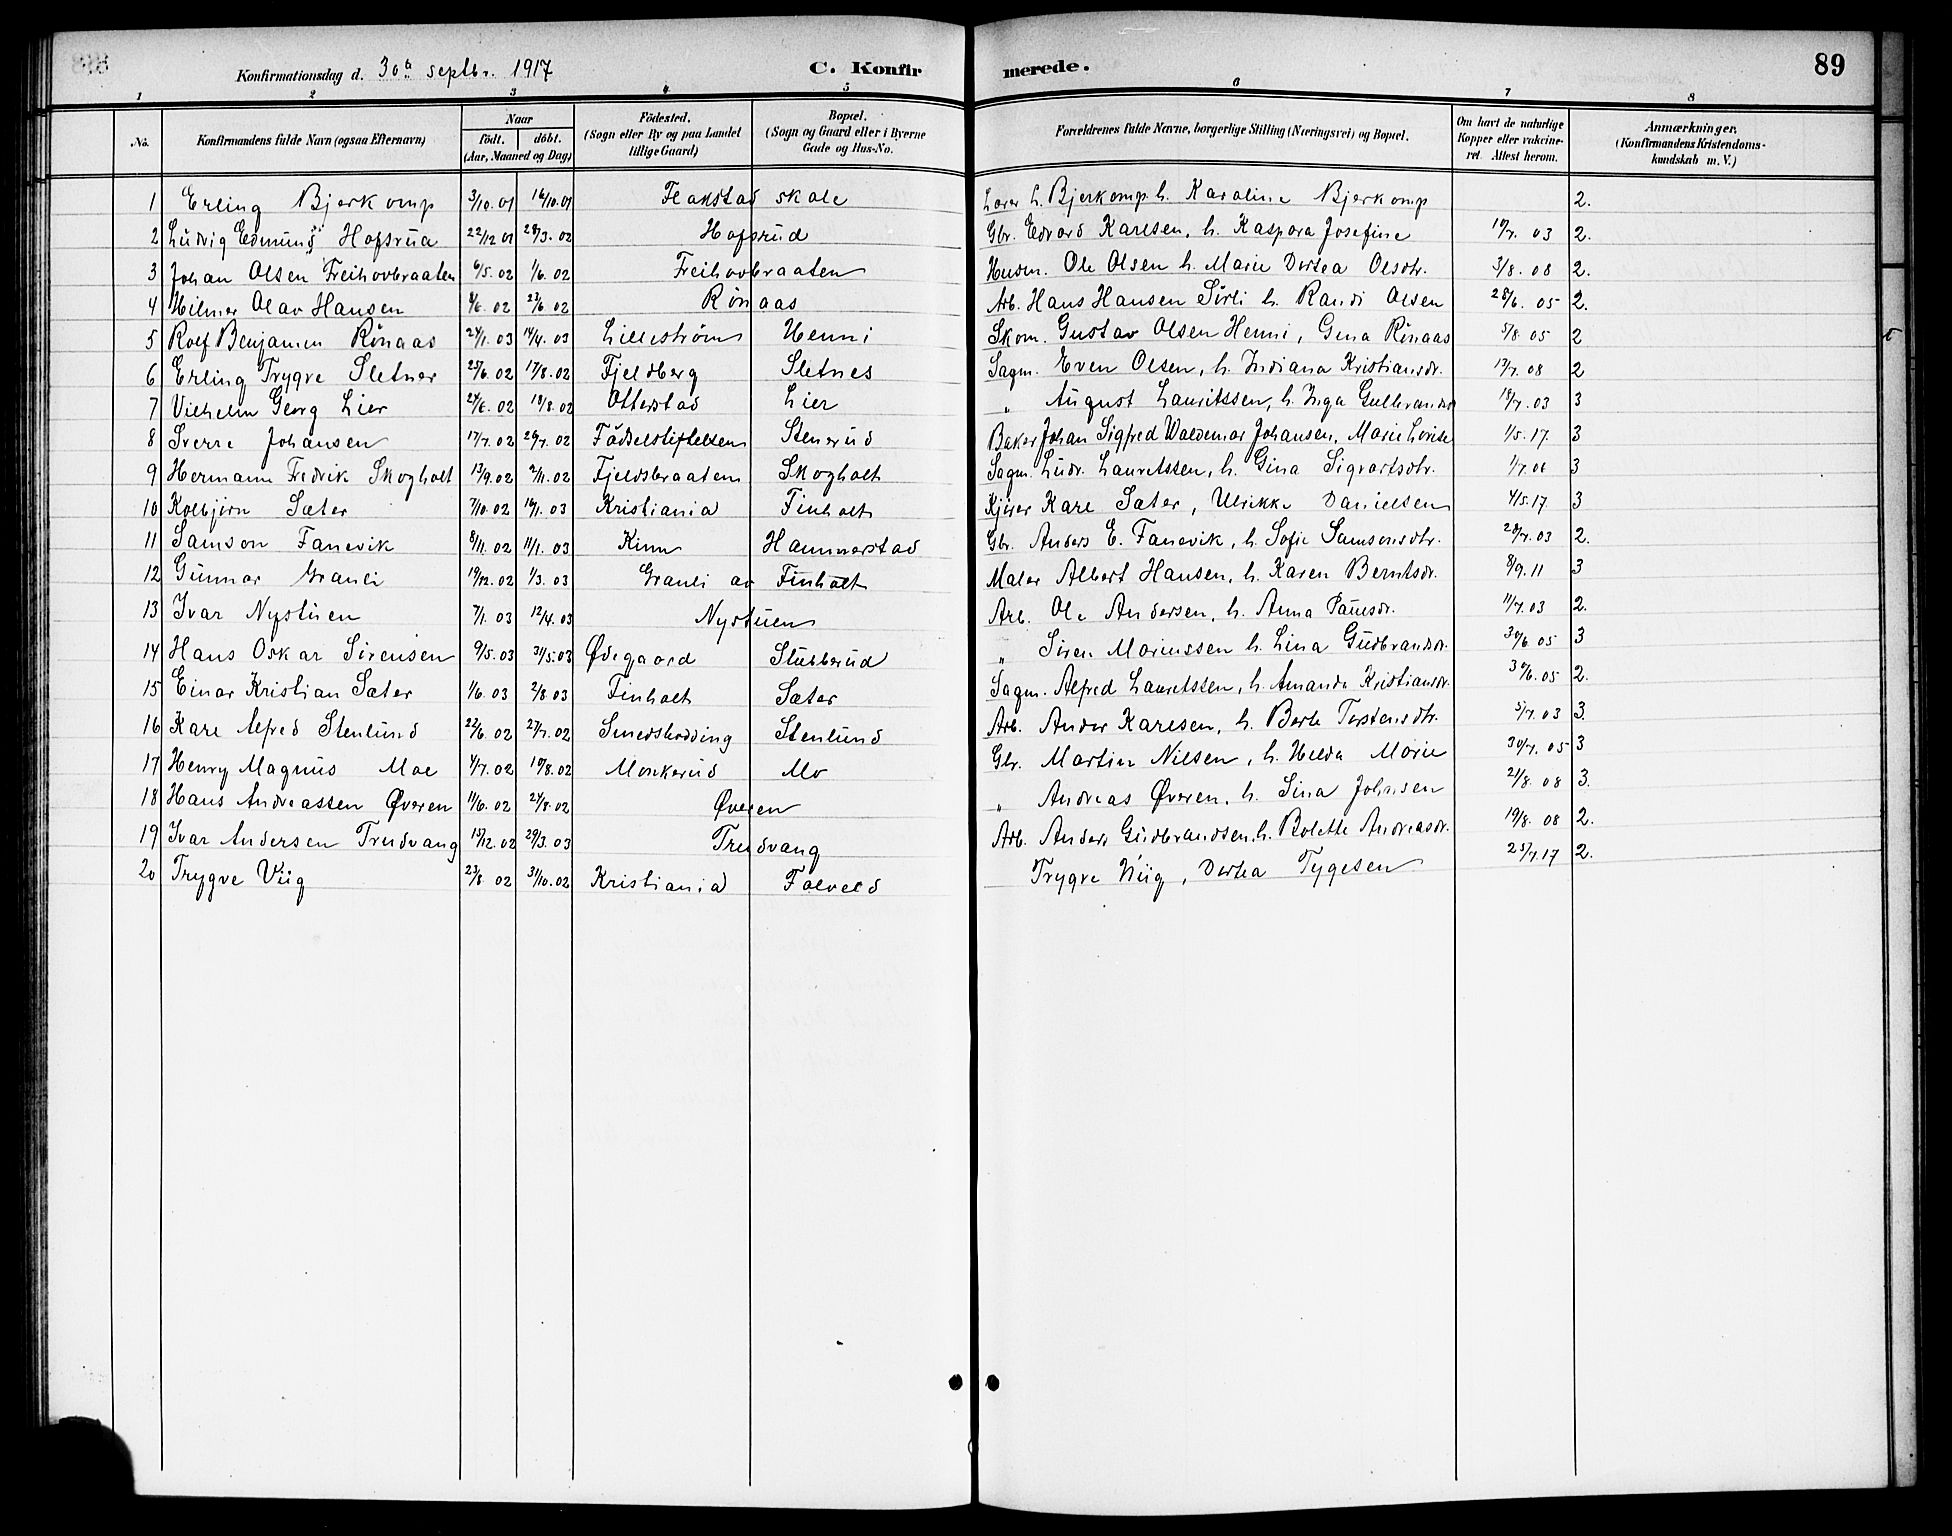 Konfirmationsdag d. 30te septbr. 1917 C. Konfirmerede. 89
1 2 3 4 5 6 7 8
No. Konfirmandens fulde Navn (ogsaa Efternavn) Naar födt. döbt. (Aar, Maaned og Dag) Födested. (Sogn eller By og paa Landet tillige Gaard) Bopæl. (Sogn og Gaard eller i Byerne Gade og Hus-No. Forældrenes fulde Navne, borgerlige Stilling (Næringsvei) og Bopæl. Om havt de naturlige Kopper eller vakcineret. Attest herom. Anmærkninger. (Konfirmandens Kristendomskundskab m. V.)
1 Erling Bjerkomp 3/10. 01 16/10. 01 Flakstad skole Lærer L. Bjerkomp h. Karoline Bjerkomp 2.
2 Ludvig Edmund Hofsrud 22/12 01 28/3. 02 Hofsrud Gbr. Edvard Karlsen, h. Kaspara Josefine 10/7. 03 2.
3 Johan Olsen Freihovbraaten 6/5. 02 1/6. 02 Freihovbraaten Husm. Ole Olsen h. Marie Dortea Olsdtr. 3/8. 08 2.
4 Hilmer Olav Hansen 4/6. 02 23/6 02 Rønaas Arb. Hans Hansen Sörli h. Randi Olsen 28/6. 05 2.
5 Rolf Benjamin Rönaas 24/1. 03 14/4. 03 Lilleström Henni Skom. Gustav Olsen Henni, Gina Rönaas 5/8 05 2
6 Erling Trygve Sletner 25/6. 02 17/8. 02 Fjeldberg Sletnes Sagm. Even Olsen, h. Indiana Kristiansdr. 17/7. 08 2
7 Vilhelm Georg Lier 24/6. 02 18/8. 02 Otterstad Lier " August Lauritssen, h. Inga Gulbrandsdr 18/7. 03 3
8 Sverre Johansen 17/7. 02 20/7. 02 Födselstiftelsen Stenerud Baker Johan Sigfred Waldemar Johansen, Marie Lovise 1/5. 17. 3
9 Hermann Fredrik Skogholt 13/9. 02 2/11. 02 Fjeldsbraaten Skogholt Sagm. Ludv. Lauretssen, h. Gina Sigvartsdtr. 1/7. 06 3
10 Kolbjörn Sæter 7/10. 02 16/1. 03 Kristiania Finholt Kjörer Karl Sæter, Ulrikke Danielsen 4/5. 17. 3
11 Samson Fanevik 8/11. 02 11/1. 03 Kinn Hammerstad Gbr. Anders E. Fanevik, h. Sofie Samsonsdtr. 28/7. 03 2.
12 Gunnar Granli 19/12. 02 1/3. 03 Granli av Finholt Maler Albert Hansen, h. Karen Berntsdr. 8/9. 11 3
13 Ivar Nystuen 7/1. 03 12/4. 03 Nystuen Arb. Ole Andersen, h. Anna Paulsdr. 11/7. 03 2.
14 Hans Oskar Sörensen 9/5. 03 31/5. 03 Ødegaard Stubberud " Sören Marinussen h. Lina Gudbrandsdr. 30/6 05 3
15 Einar Kristian Sæter 1/6. 03 2/8 03 Finholt Sæter Sagm. Alfred Lauretssen, h. Amanda Kristiansdr. 30/6. 05 2.
16 Karl Alfred Stenlund 22/6. 02 27/7. 02 Smedsbodding Stenlund Arb. Ander Karlsen, h. Berte Torstensdtr. 5/7. 03 3.
17 Henry Magnus Moe 4/7. 02 10/8. 02 Monkerud Mo Gbr. Martin Nilsen, h. Helda Marie 30/7. 05 3
18 Hans Andreassen Øveren 11/6. 02 24/8. 02 Øveren " Andreas Øveren, h. Lina Johnsen 21/8. 08 3.
19 Ivar Andersen Trudvang 15/12. 02 29/3. 03 Trudvang Arb. Anders Gudbrandsen, h. Bolette Andreasdr. 19/8. 08 2.
20 Trygve Viig 23/8 02 31/10. 02 Kristiania Folveld Trygve Viig, Dortea Tygesen 25/7. 17 2.